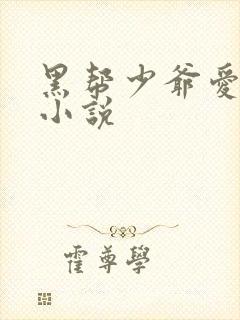 黑帮少爺愛
小説
霍尊學